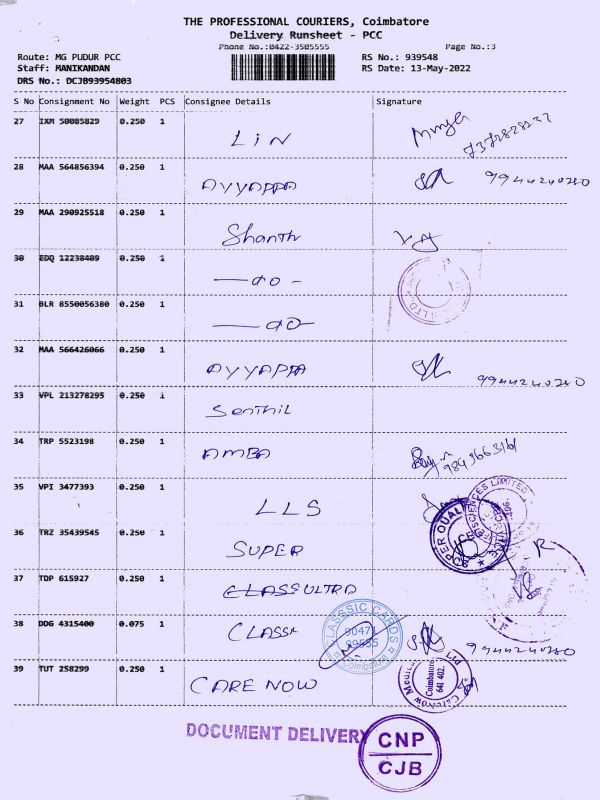 THE PROFESSIONAL COURIERS, Coimbatore
Delivery Runsheet - PCC
Phone No.:0422-3505555 Page No.:3
Route: MG PUDUR PCC RS No.: 939548
Staff: MANIKANDAN RS Date: 13-May-2022
DRS No.: DCJB93954803
S No Consignment No Weight PCS Consignee Details Signature
27 IXM 50085829 0.250 1 LIN
28 MAA 564856394 0.250 1 AYYAPPA 9944240280
29 MAA 290925518 0.250 1 Shanthi
30 EDQ 12238489 0.250 1 —do-
31 BLR 8550056380 0.250 1 —do-
32 MAA 566426066 0.250 1 AYYAPPA 9944240280
33 VPL 213278295 0.250 1 Senthil
34 TRP 5523198 0.250 1 AMBA
35 VPI 3477393 0.250 1 LLS
36 TRZ 35439545 0.250 1 SUPER
37 TDP 615927 0.250 1 CLASS ULTRA
38 DDG 4315400 0.075 1 CLASSI 9944240280
39 TUT 258299 0.250 1 CARE NOW
CLASSSIC CARDS
90471
Coimbatore
SUPER QUAL
SCIENCES LIMITED
CareNow Medical Ltd
Coimbatore
641 402.
DOCUMENT DELIVERY
CNP
CJB